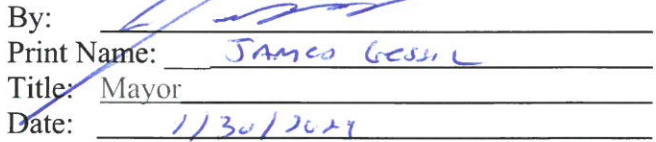 By:
Print Name: JAMES GESSIL
Title: Mayor
Date: 1/30/2024